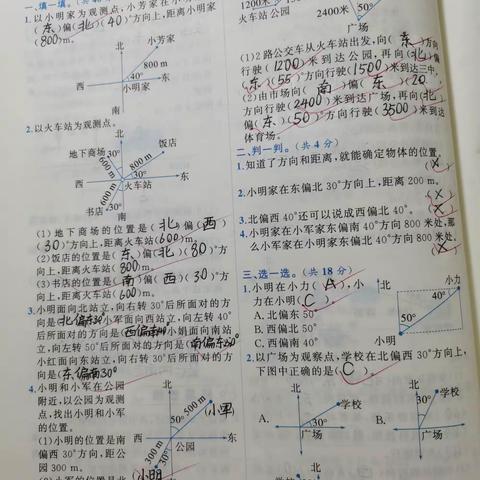 1.以小明家为观测点,小芳家在小明家
(东)偏(北)(40)°方向上,距离小明家
(800)m。
北
小芳家
800 m
40°
西
东
小明家
南
2.以火车站为观测点。
北
地下商场
30°
饭店
600 m
800 m
30°
西
东
火车站
600 m
书店
30°
南
(1)地下商场的位置是(北)偏(西)
(30)°方向上,距离火车站(600)m。
(2)饭店的位置是(东)偏(北)(30)°方
向上,距离火车站(800)m。
(3)书店的位置是(南)偏(西)(30)°方
向上,距离火车站(600)m。
3.小明面向北站立,向右转30°后所面对的方
向是(北偏东30°);小军面向西站立,向左转40°
后所面对的方向是(西偏南40°);小娟面向南站
立,向左转50°后所面对的方向是(南偏东50°);
小红面向东站立,向右转30°后所面对的方
向是(东偏南30°)
4.小明和小军在公园
附近,以公园为观测
点,找出小明和小军
的位置。
(1)小明的位置是南
偏西30°方向,距公
园300 m。
北
(小军)
50°
500 m
西
东
公园
300 m
30°
(小明)
1200米
火车站
公园
2400米
50°
广场
(1)2路公交车从火车站出发,向(东)方向
行驶(1200)米到达公园,再向(北)偏
(东)(55)°方向行驶(1500)米到达三中。
(2)由市场向(南)偏(东)(20)°
方向行驶(2400)米到达广场,再向(北)
偏(东)(50)°方向行驶(3500)米到达
体育场。
二、判一判。(共4分)
1.知道了方向和距离,就能确定物体的位置。
(×)
2.小明家在东偏北30°方向上,距离200 m。
(×)
3.北偏西40°还可以说成西偏北40°。(×)
4.小明家在小军家东偏南40°方向800米处,那
么小军家在小明家东偏北40°方向800米处。
(×)
三、选一选。(共18分)
1.小明在小力(A),小
力在小明(C)。
A.北偏东50°
B.西偏北50°
C.西偏南40°
北
小力
40°
50°
小明
2.以广场为观察点,学校在北偏西30°方向上,
下图中正确的是(C)。
北
学校
A.
30°
广场
北
学校
B.
30°
广场
北
北